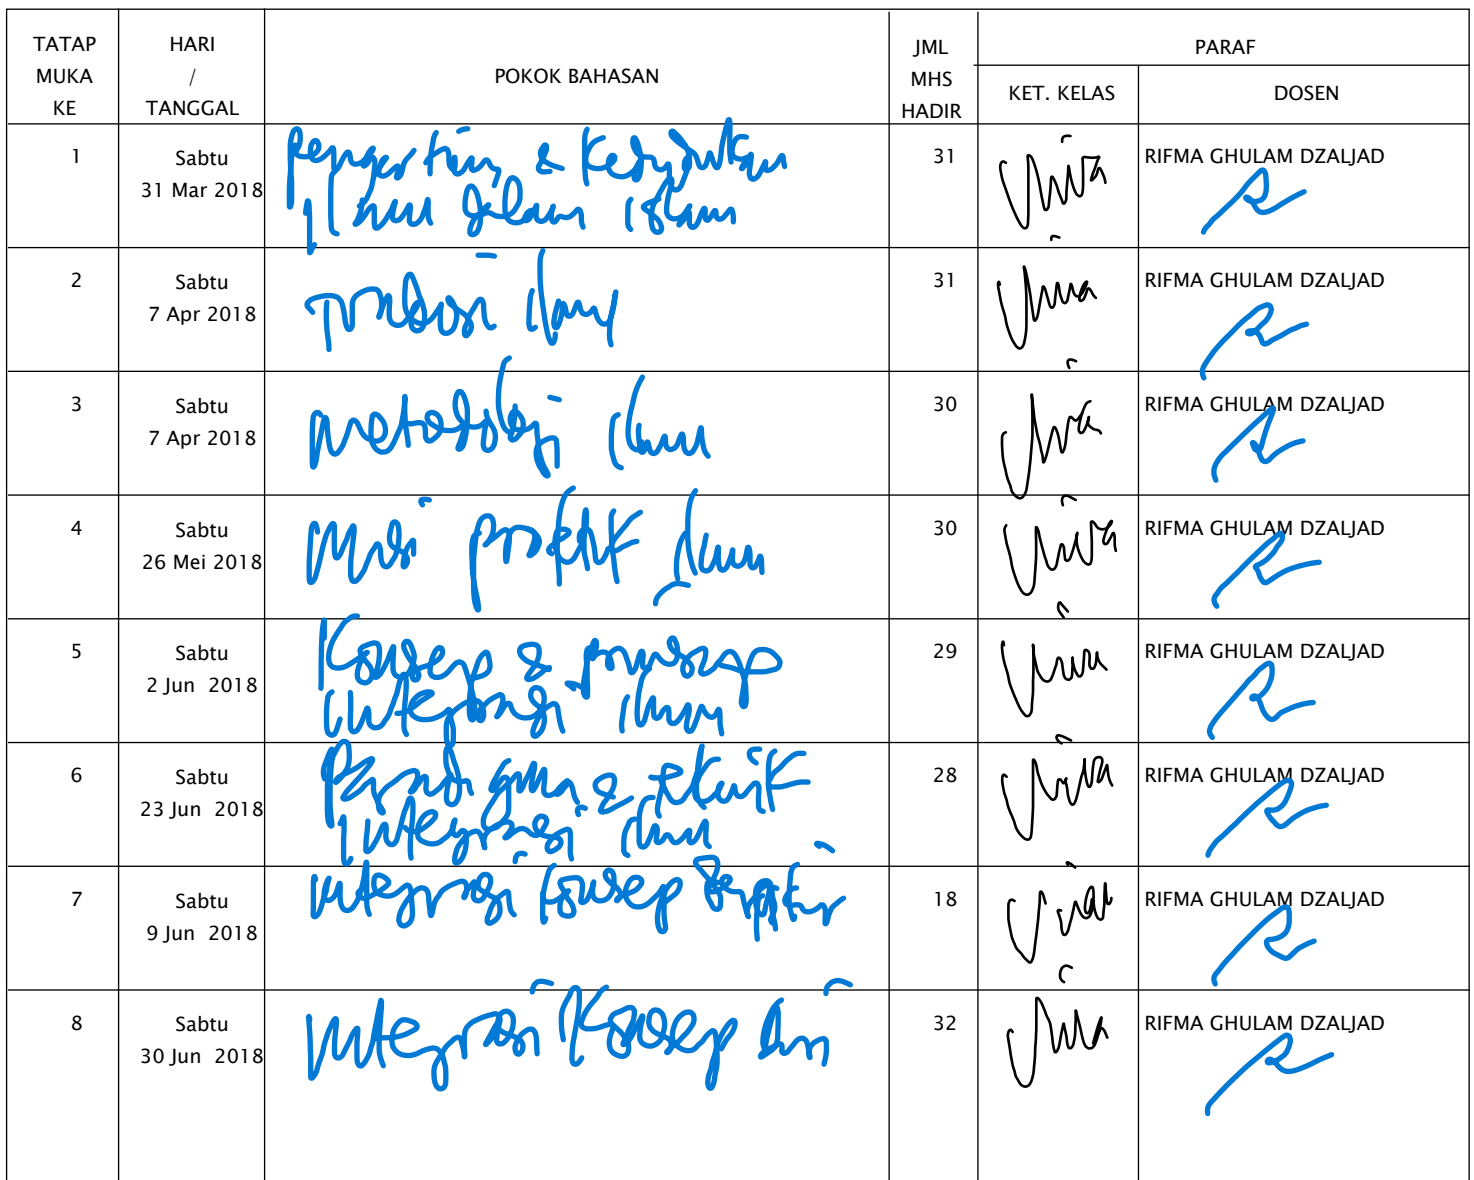 TATAP MUKA KE HARI / TANGGAL POKOK BAHASAN JML MHS HADIR PARAF
KET. KELAS DOSEN
1 Sabtu 31 Mar 2018 Pengertian & Kedudukan 31 RIFMA GHULAM DZALJAD
Ilmu dalam Islam
2 Sabtu 7 Apr 2018 Tradisi Ilmu 31 RIFMA GHULAM DZALJAD
3 Sabtu 7 Apr 2018 metodologi Ilmu 30 RIFMA GHULAM DZALJAD
4 Sabtu 26 Mei 2018 Misi profetik Ilmu 30 RIFMA GHULAM DZALJAD
5 Sabtu 2 Jun 2018 Konsep & prinsip 29 RIFMA GHULAM DZALJAD
Integrasi Ilmu
6 Sabtu 23 Jun 2018 Paradigma & teknik 28 RIFMA GHULAM DZALJAD
Integrasi Ilmu
7 Sabtu 9 Jun 2018 Integrasi Konsep Berpikir 18 RIFMA GHULAM DZALJAD
8 Sabtu 30 Jun 2018 Integrasi Konsep diri 32 RIFMA GHULAM DZALJAD